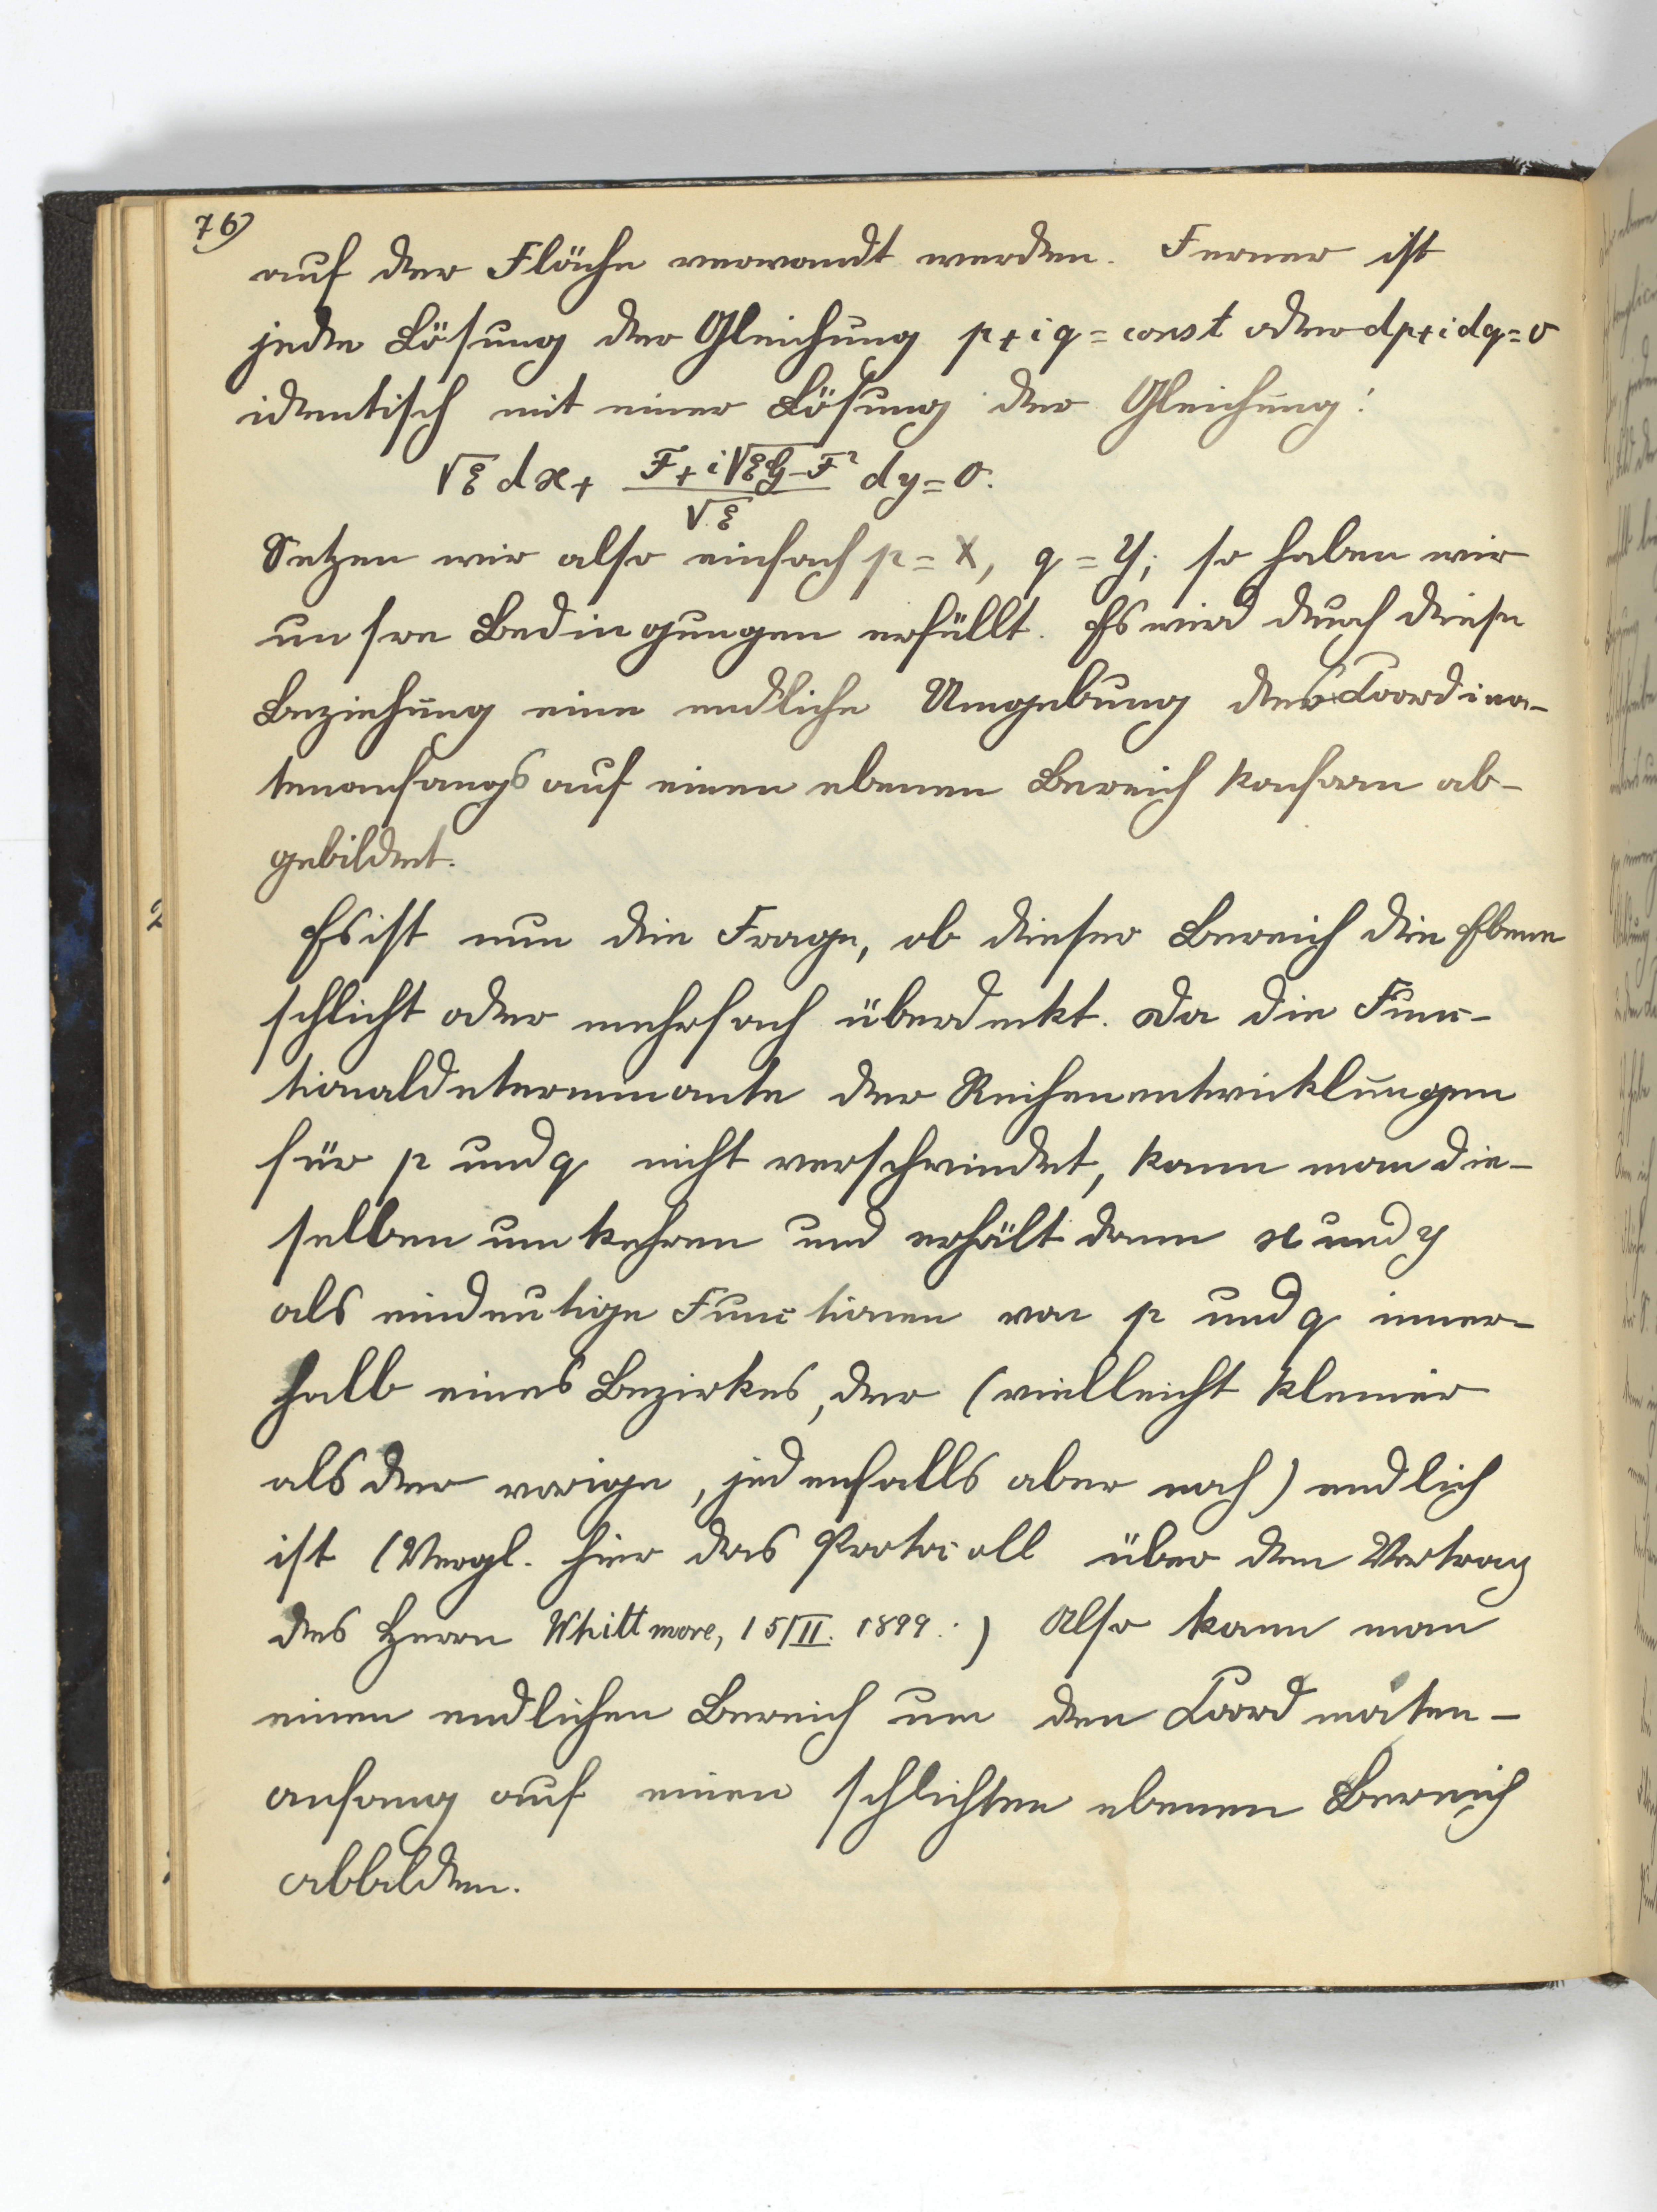 76)
auf der Fläche verwandt werden. Ferner ist
jede Lösung der Gleichung p+iq = const oder dp+idq=0
identisch mit einer Lösung der Gleichung:
√E dx + (F+i√(EG-F²))/√E dy = 0.
Setzen wir also einfach p = X, q = Y; so haben wir
unsre Bedingungen erfüllt. Es wird durch diese
Beziehung eine endliche Umgebung des Coordina-
tenanfangs auf einen ebenen Bereich konform ab-
gebildet.
Es ist nun die Frage, ob dieser Bereich die Ebene
schlicht oder mehrfach überdeckt. Da die Func-
tionaldeterminante der Reihenentwicklungen
für p und q nicht verschwindet, kann man die-
selben umkehren und erhält dann x und y
als eindeutige Functionen von p und q inner-
halb eines Bezirkes, der (vielleicht kleiner
als der vorige, jedenfalls aber noch) endlich
ist (Vergl. hier das Protocoll über den Vortrag
des Herrn Whittmore, 15/II. 1899.) Also kann man
einen endlichen Bereich um den Coordinaten-
anfang auf einen schlichten ebenen Bereich
abbilden.